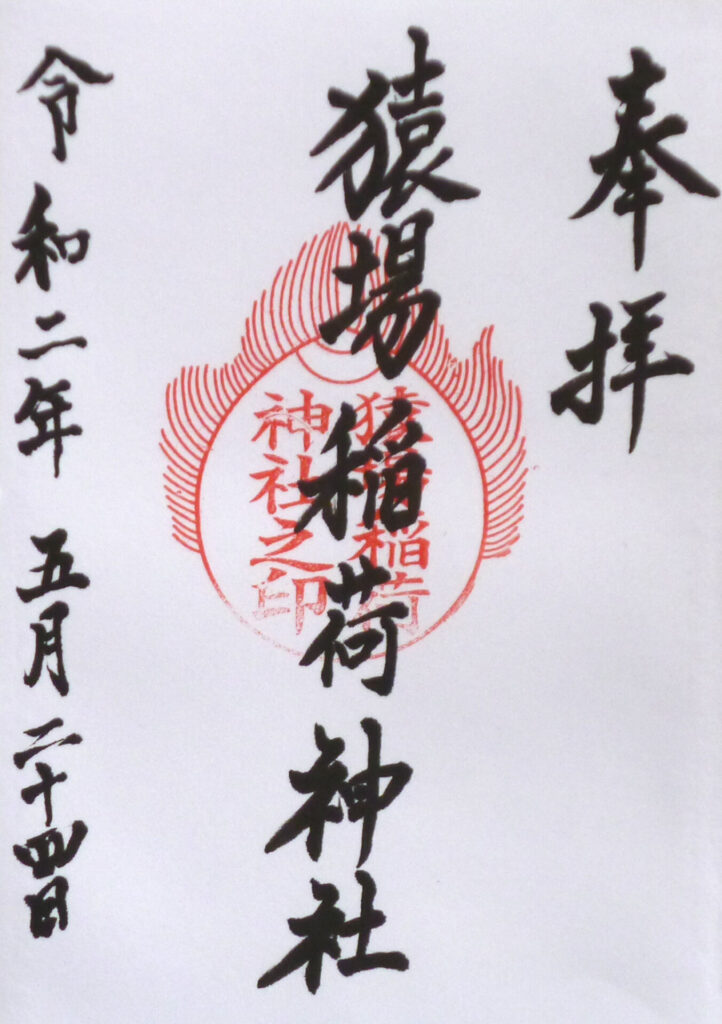 奉拝
猿場稲荷神社
猿場稲荷
神社之印
令和二年 五月二十四日